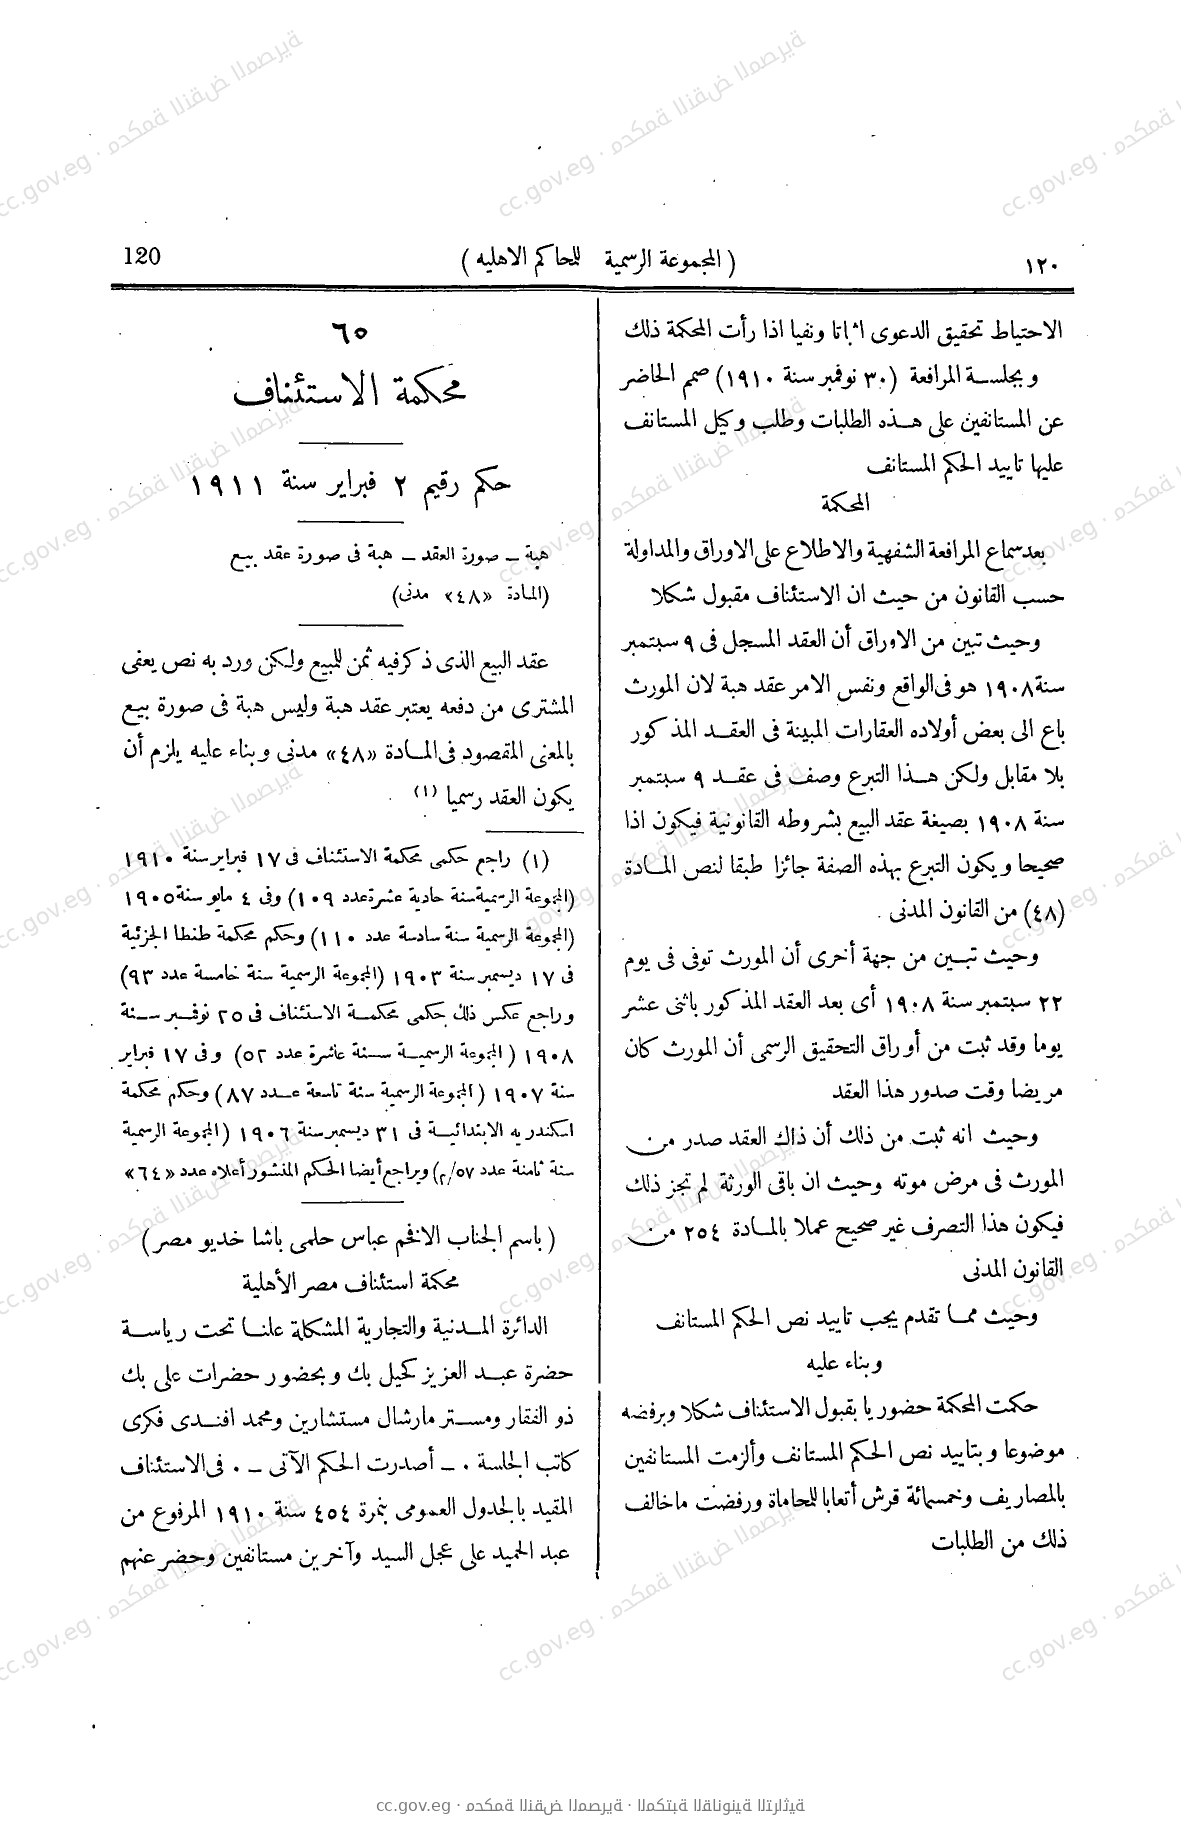 ١٢٠ ( المجموعة الرسمية للمحاكم الاهليه ) 120
الاحتياط تحقيق الدعوى اثباتا ونفيا اذا رأت المحكمة ذلك
وبجلسة المرافعة (٣٠ نوفمبر سنة ١٩١٠) صمم الحاضر
عن المستانفين على هذه الطلبات وطلب وكيل المستانف
عليها تاييد الحكم المستانف
المحكمة
بعد سماع المرافعة الشفهية والاطلاع على الاوراق والمداولة
حسب القانون من حيث ان الاستئناف مقبول شكلا
وحيث تبين من الاوراق أن العقد المسجل فى ٩ سبتمبر
سنة ١٩٠٨ هو فى الواقع ونفس الامر عقد هبة لان المورث
باع الى بعض أولاده العقارات المبينة فى العقد المذكور
بلا مقابل ولكن هذا التبرع وصف فى عقد ٩ سبتمبر
سنة ١٩٠٨ بصيغة عقد البيع بشروطه القانونية فيكون اذا
صحيحا ويكون التبرع بهذه الصفة جائزا طبقا لنص المادة
(٤٨) من القانون المدنى .
وحيث تبين من جهة أخرى أن المورث توفى فى يوم
٢٢ سبتمبر سنة ١٩٠٨ أى بعد العقد المذكور باثنى عشر
يوما وقد ثبت من أوراق التحقيق الرسمى أن المورث كان
مريضا وقت صدور هذا العقد
وحيث انه ثبت من ذلك أن ذاك العقد صدر من
المورث فى مرض موته وحيث ان باقى الورثة لم تجز ذلك
فيكون هذا التصرف غير صحيح عملا بالمادة ٢٥٤ من
القانون المدنى
وحيث مما تقدم يجب تاييد نص الحكم المستانف
وبناء عليه
حكمت المحكمة حضوريا بقبول الاستئناف شكلا وبرفضه
موضوعا وبتاييد نص الحكم المستانف وألزمت المستانفين
بالمصاريف وخمسمائة قرش أتعابا للمحاماة ورفضت ماخالف
ذلك من الطلبات
٦٥
محكمة الاستئناف
حكم رقيم ٢ فبراير سنة ١٩١١
هبة – صورة العقد – هبة فى صورة عقد بيع
(المادة «٤٨» مدنى)
عقد البيع الذى ذكر فيه ثمن للمبيع ولكن ورد به نص يعفى
المشترى من دفعه يعتبر عقد هبة وليس هبة فى صورة بيع
بالمعنى المقصود فى المادة «٤٨» مدنى وبناء عليه يلزم أن
يكون العقد رسميا (١) .
(١) راجع حكمى محكمة الاستئناف فى ١٧ فبراير سنة ١٩١٠
(المجموعة الرسمية سنة حادية عشرة عدد ١٠٩) وفى ٤ مايو سنة ١٩٠٥
(المجموعة الرسمية سنة سادسة عدد ١١٠) وحكم محكمة طنطا الجزئية
فى ١٧ ديسمبر سنة ١٩٠٣ (المجموعة الرسمية سنة خامسة عدد ٩٣)
وراجع عكس ذلك حكمى محكمة الاستئناف فى ٢٥ نوفمبر سنة
١٩٠٨ (المجموعة الرسمية سنة عاشرة عدد ٥٢) وفى ١٧ فبراير
سنة ١٩٠٧ (المجموعة الرسمية سنة تاسعة عدد ٨٧) وحكم محكمة
اسكندريه الابتدائية فى ٣١ ديسمبر سنة ١٩٠٦ (المجموعة الرسمية
سنة ثامنة عدد ٥٧/٢) ويراجع أيضا الحكم المنشور أعلاه عدد «٦٤»
( باسم الجناب الافخم عباس حلمى باشا خديو مصر )
محكمة استئناف مصر الأهلية
الدائرة المدنية والتجارية المشكلة علنا تحت رياسة
حضرة عبد العزيز كحيل بك وبحضور حضرات على بك
ذو الفقار ومستر مارشال مستشارين ومحمد افندى فكرى
كاتب الجلسة . – أصدرت الحكم الآتى – . فى الاستئناف
المقيد بالجدول العمومى بنمرة ٤٥٤ سنة ١٩١٠ المرفوع من
عبد الحميد على عجل السيد وآخرين مستانفين وحضر عنهم
cc.gov.eg · محكمة النقض المصرية · المكتبة القانونية التراثية